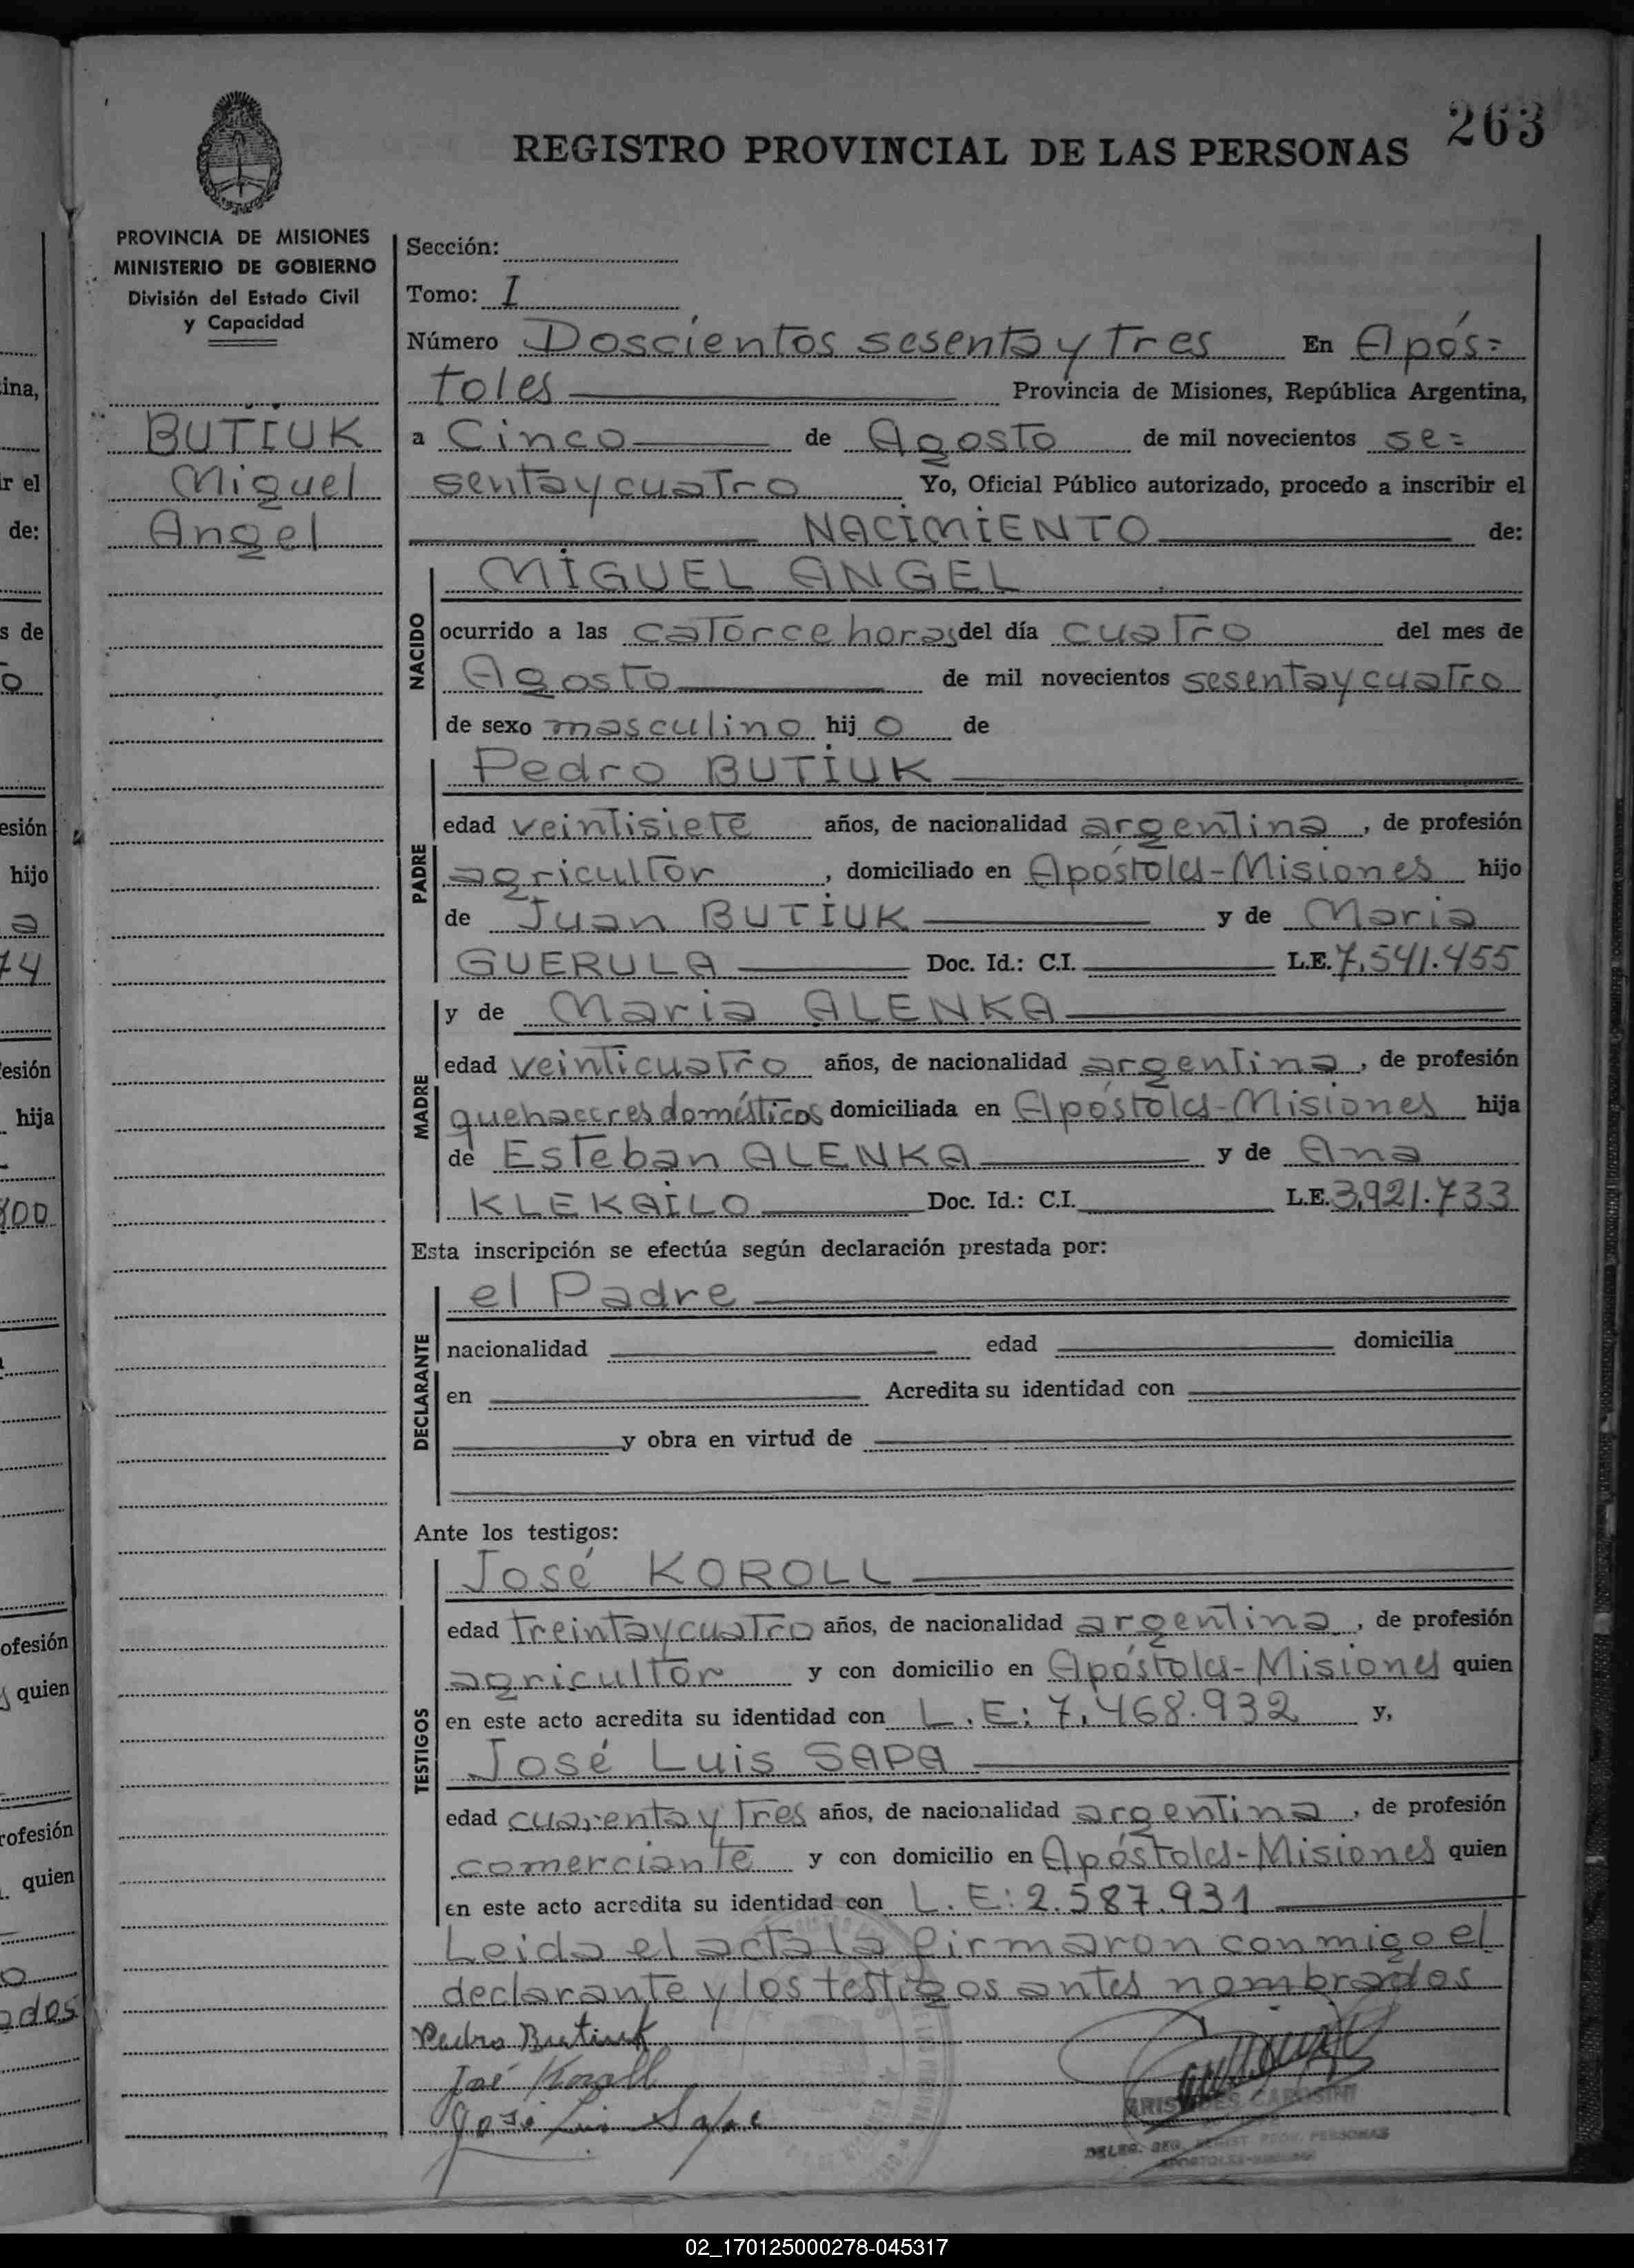 263
REGISTRO PROVINCIAL DE LAS PERSONAS
PROVINCIA DE MISIONES
MINISTERIO DE GOBIERNO
División del Estado Civil
y Capacidad
BUTIUK
Miguel
Angel
Sección:
Tomo: I
Número Doscientos sesenta y tres En Após=
toles Provincia de Misiones, República Argentina,
a Cinco de Agosto de mil novecientos se=
senta y cuatro Yo, Oficial Público autorizado, procedo a inscribir el
NACIMIENTO de:
NACIDO
MIGUEL ANGEL
ocurrido a las catorce horas del día cuatro del mes de
Agosto de mil novecientos sesenta y cuatro
de sexo masculino hijo de
PADRE
Pedro BUTIUK
edad veintisiete años, de nacionalidad argentina, de profesión
agricultor, domiciliado en Apóstoles-Misiones hijo
de Juan BUTIUK y de Maria
GUERULA Doc. Id.: C.I. L.E. 7.541.455
MADRE
y de Maria ALENKA
edad veinticuatro años, de nacionalidad argentina, de profesión
quehaceres domésticos domiciliada en Apóstoles-Misiones hija
de Esteban ALENKA y de Ana
KLEKAILO Doc. Id.: C.I. L.E. 3.921.733
Esta inscripción se efectúa según declaración prestada por:
DECLARANTE
el Padre
nacionalidad edad domicilia
en Acredita su identidad con
y obra en virtud de
Ante los testigos:
TESTIGOS
José KOROLL
edad treinta y cuatro años, de nacionalidad argentina, de profesión
agricultor y con domicilio en Apóstoles-Misiones quien
en este acto acredita su identidad con L.E: 7.468.932 y,
José Luis SAPA
edad cuarenta y tres años, de nacionalidad argentina, de profesión
comerciante y con domicilio en Apóstoles-Misiones quien
en este acto acredita su identidad con L.E: 2.587.931
Leida el acta la firmaron conmigo el
declarante y los testigos antes nombrados
Pedro Butiuk
José Koroll
José Luis Sapa
ARISTIDES CAROSINI
DELEG. SEC. REGIST. PROV. PERSONAS
APOSTOLES-MISIONES
ina,
ir el
de:
s de
o
esión
hijo
a
74
esión
hija
400
ofesión
quien
rofesión
quien
o
ados
02_170125000278-045317